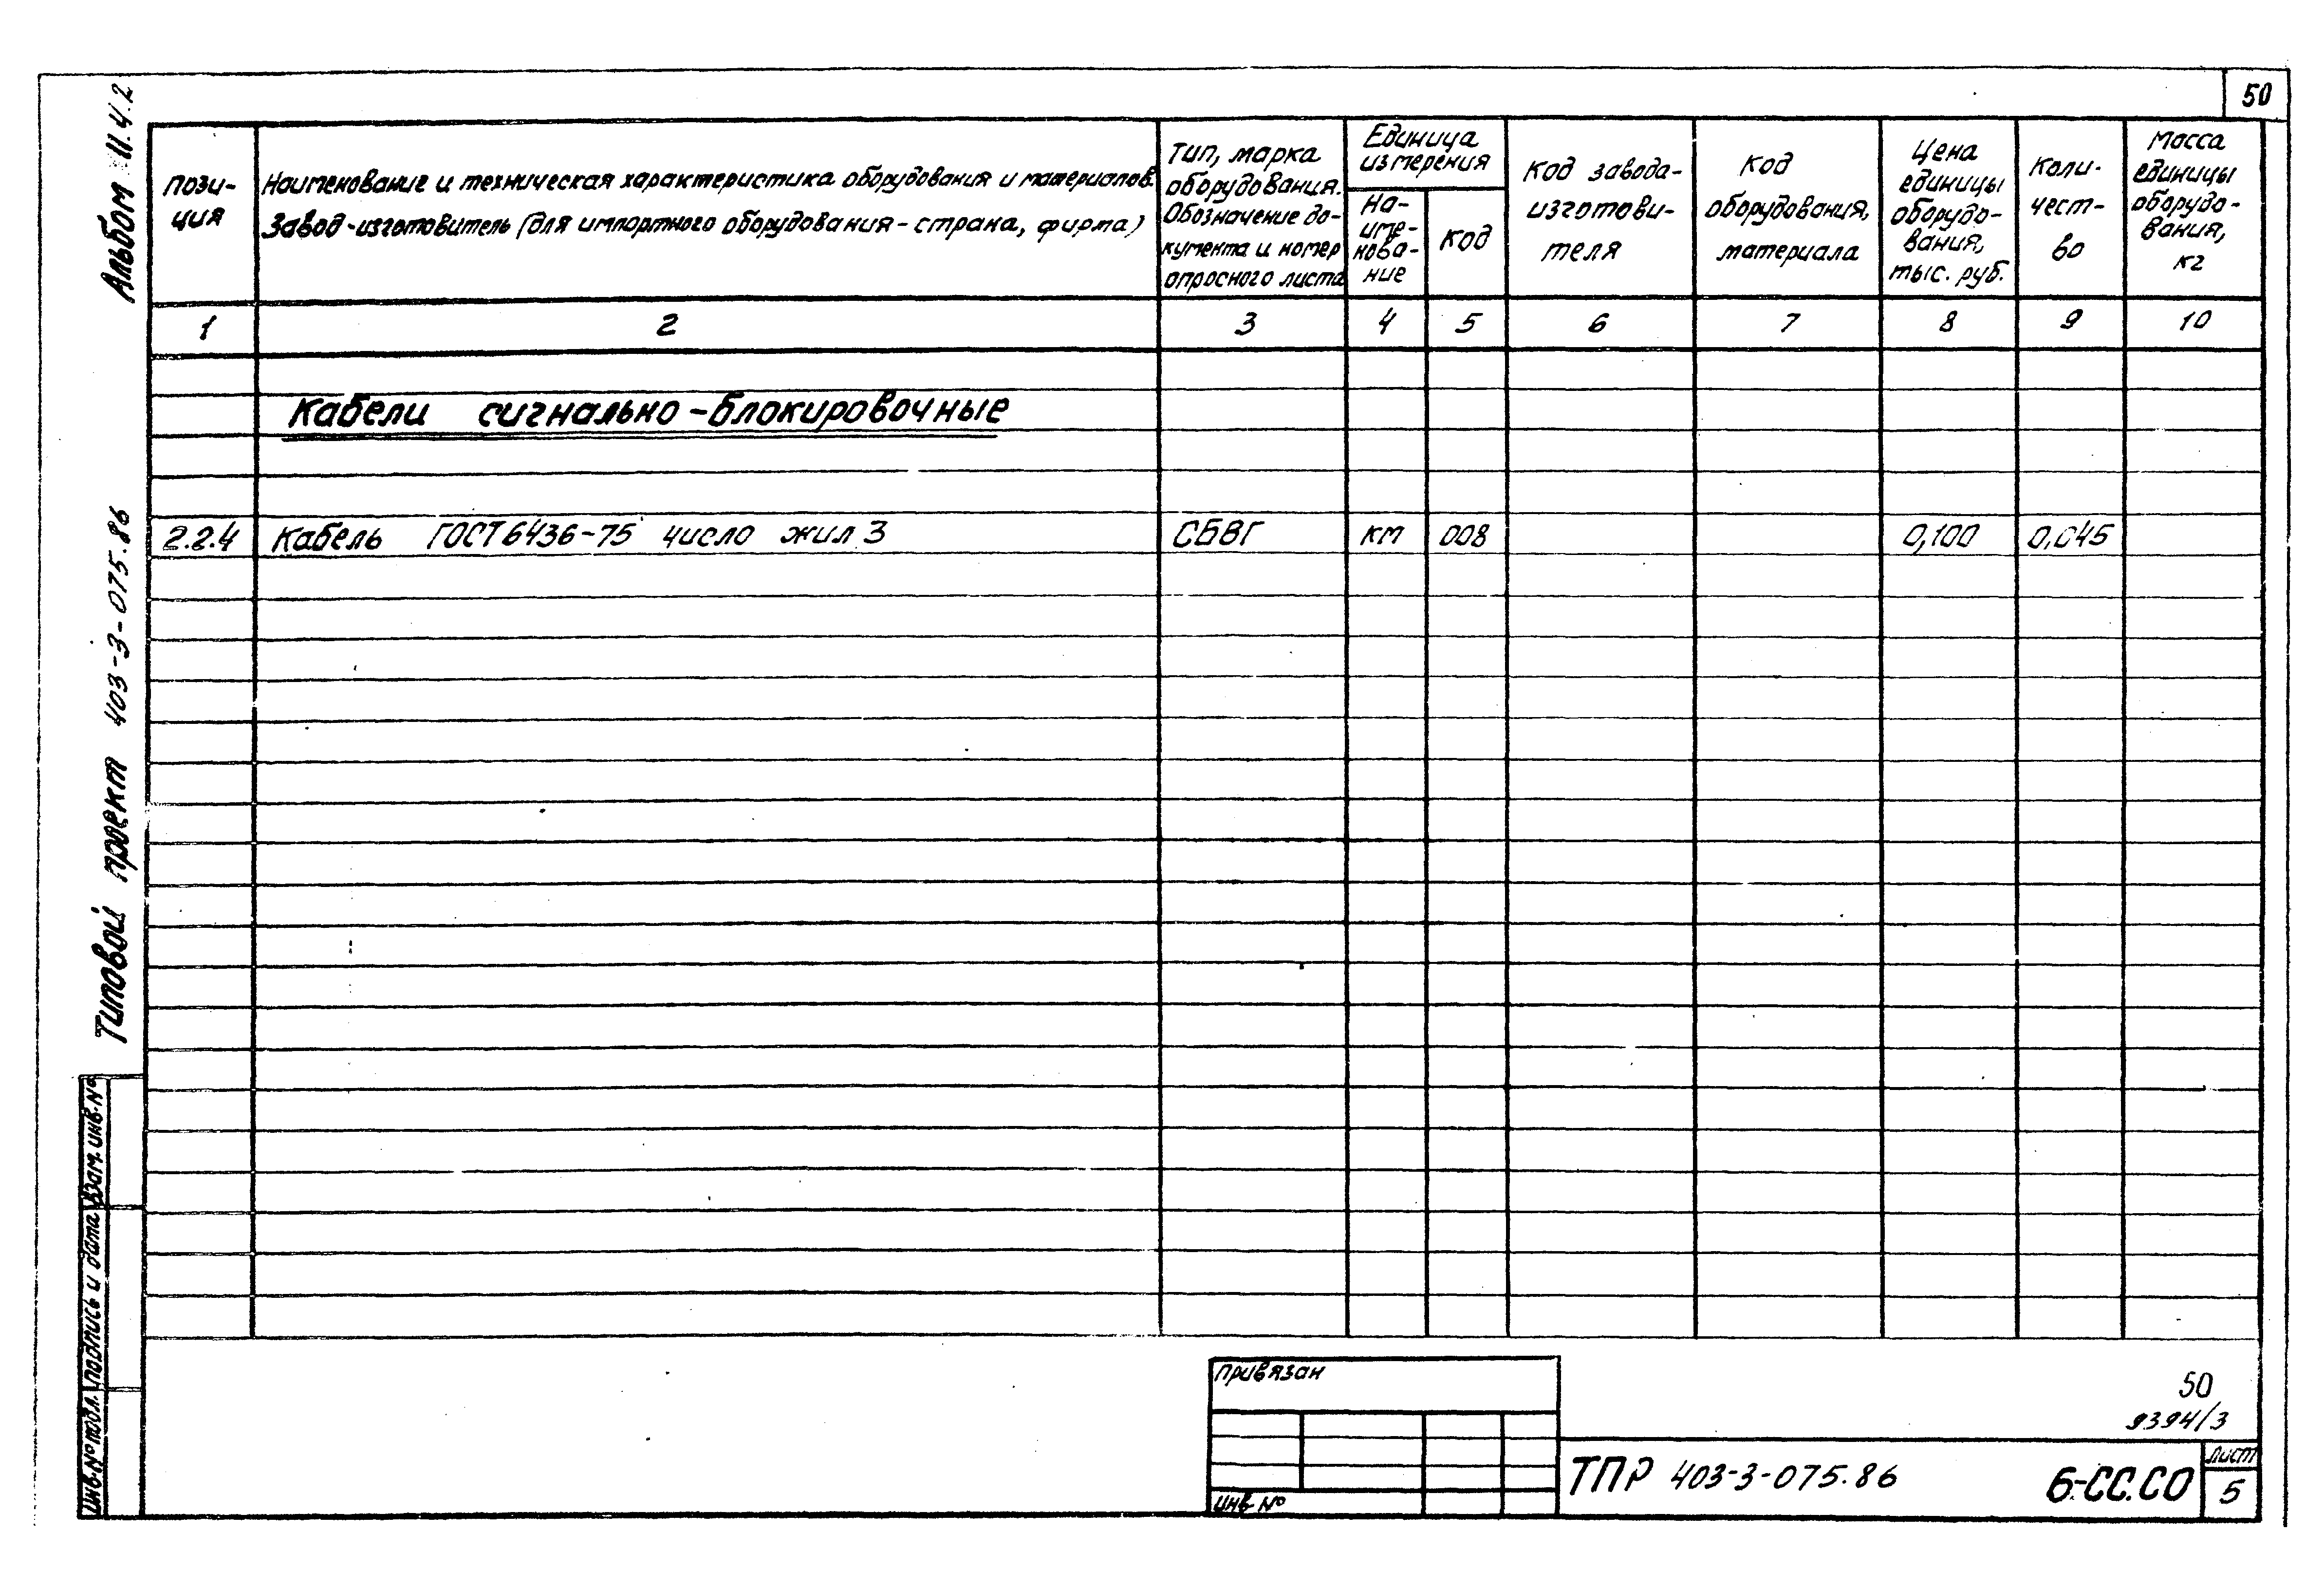 50
Альбом II.4.2
Типовой проект 403-3-075.86
Пози-
ция
Наименование и техническая характеристика оборудования и материалов.
Завод-изготовитель (для импортного оборудования-страна, фирма)
Тип, марка
оборудования.
Обозначение до-
кумента и номер
опросного листа
Единица
измерения
На-
име-
нова-
ние
код
Код завода-
изготови-
теля
Код
оборудования,
материала
Цена
единицы
оборудо-
вания,
тыс. руб.
Коли-
чест-
во
Масса
единицы
оборудо-
вания,
кг
1 2 3 4 5 6 7 8 9 10
Кабели сигнально-блокировочные
2.2.4 Кабель ГОСТ 6436-75 число жил 3 СБВГ км 008 0,100 0,045
Взам. инв. №
Подпись и дата
Инв. № подл.
Привязан
Инв №
50
9394/3
ТПР 403-3-075.86 6-СС.СО
Лист
5